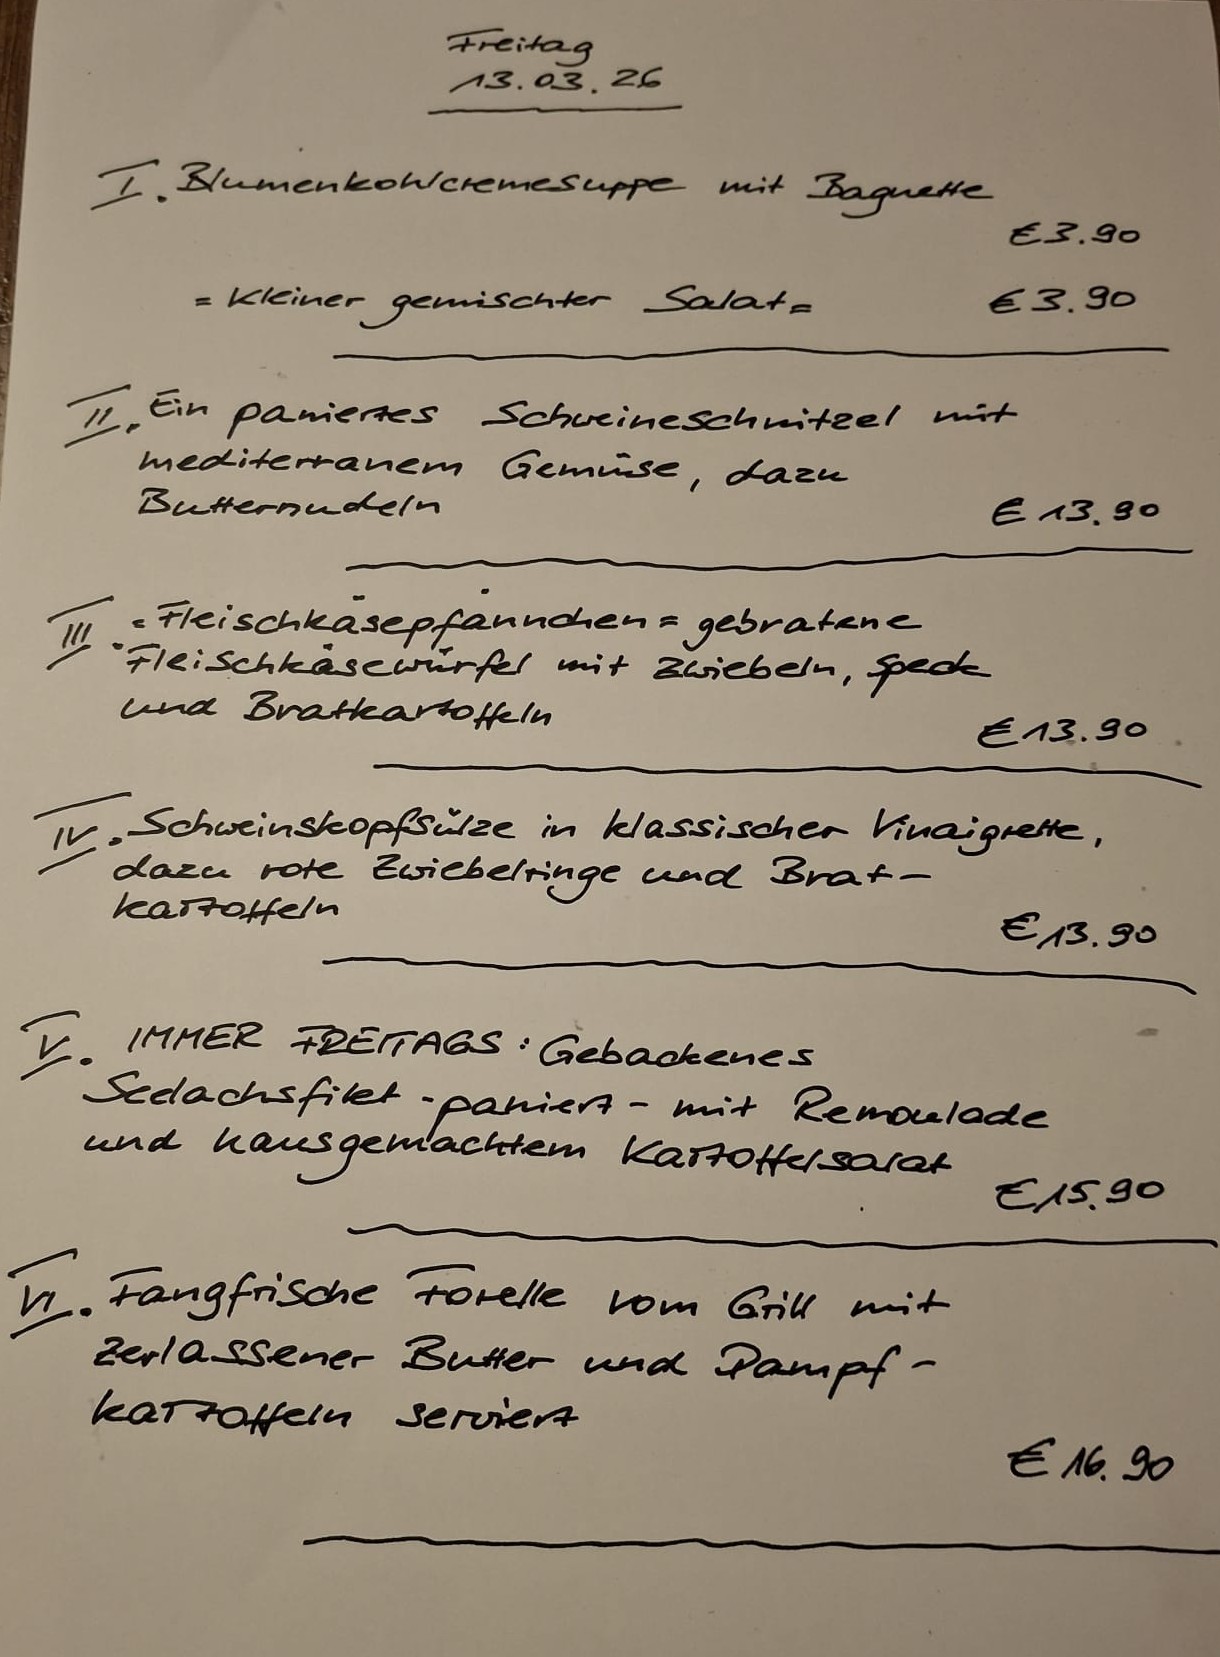 Freitag
13.03.26
I. Blumenkohlcremesuppe mit Baguette
€ 3.90
= Kleiner gemischter Salat = € 3.90
II. Ein paniertes Schweineschnitzel mit
mediterranem Gemüse, dazu
Butternudeln € 13.90
III. = Fleischkäsepfännchen = gebratene
Fleischkäsewürfel mit Zwiebeln, Speck
und Bratkartoffeln
€ 13.90
IV. Schweinskopfsülze in klassischer Vinaigrette,
dazu rote Zwiebelringe und Brat-
kartoffeln
€ 13.90
V. IMMER FREITAGS: Gebackenes
Seelachsfilet - paniert - mit Remoulade
und hausgemachtem Kartoffelsalat
€ 15.90
VI. Fangfrische Forelle vom Grill mit
zerlassener Butter und Dampf-
kartoffeln serviert
€ 16.90